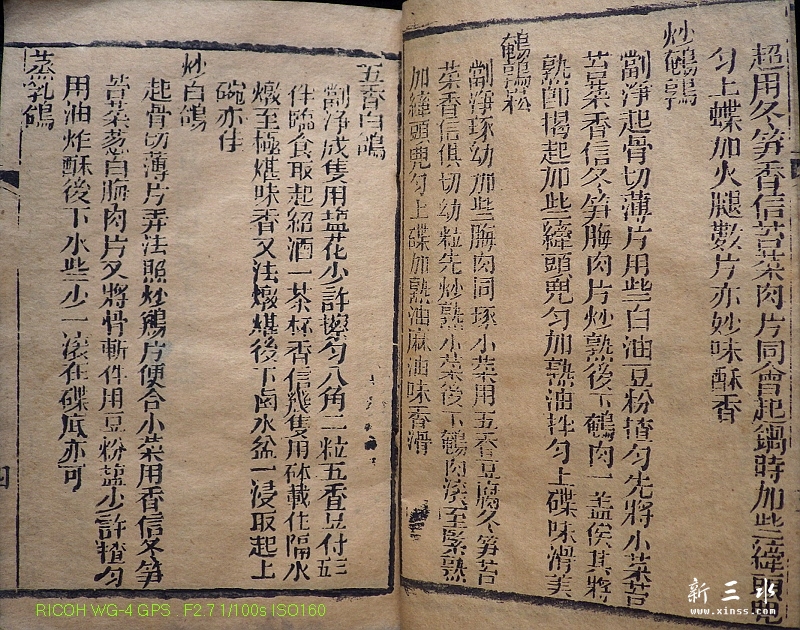 超用冬笋香信苦菜肉片同會起鍋時加些緯頭兜
勻上蝶加火腿數片亦妙味酥香
炒鵪鶉
劏淨起骨切薄片用些白油豆粉揸勻先將小菜苦
苦菜香信冬笋膴肉片炒熟後下鵪肉一盖俟其將
熟卽揭起加些緯頭兜勻加熟油拌勻上碟味滑美
鵪鶉崧
劏淨琢幼加些膴肉同琢小菜用五香豆腐冬笋苦
菜香信俱切幼粒先炒熟小菜後下鵪肉滾至緊熟
加緯頭兜勻上碟加熟油麻油味香滑
五香白鴿
劏淨成隻用盐花少許擦勻八角二粒五香豆付
件臨食取起紹酒一茶杯香信幾隻用砵載住隔水
燉至極堪味香又法燉堪後下卤水盆一浸取起上
碗亦佳
炒白鴿
起骨切薄片弄法照炒鷯片便合小菜用香信冬笋
苦菜葱白膴肉片又將骨斬件用豆粉盐少許揸勻
用油炸酥後下水些少一滾在碟底亦可
蒸乳鴿
四
RICOH WG-4 GPS F2.7 1/100s ISO160
新三水
www.xinss.com